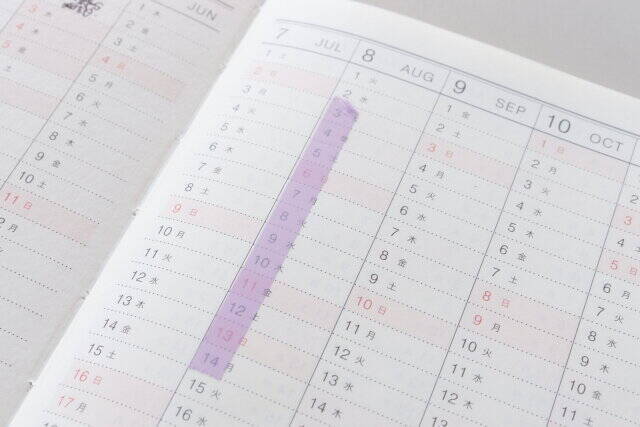 JUN
1 木
2 金
3 土
4 日
5 月
6 火
7 水
8 木
9 金
10 土
11 日
7 JUL
1 土
2 日
3 月
4 火
5 水
6 木
7 金
8 土
9 日
10 月
11 火
12 水
13 木
14 金
15 土
16 日
17 月
8 AUG
1 火
2 水
3
4
5 土
6 日
7 月
8 火
9 水
10 木
11 金
12 土
13 日
14 月
15 火
16 水
9 SEP
1 金
2 土
3 日
4 月
5 火
6 水
7 木
8 金
9 土
10 日
11 月
12 火
13 水
14 木
10 OCT
1 日
2 月
3 火
4 水
5 木
6 金
7 土
8 日
9 月
10 火
11 水
12 木
2
3
4
5 日
6 月
7 火
8 水
9 木
10